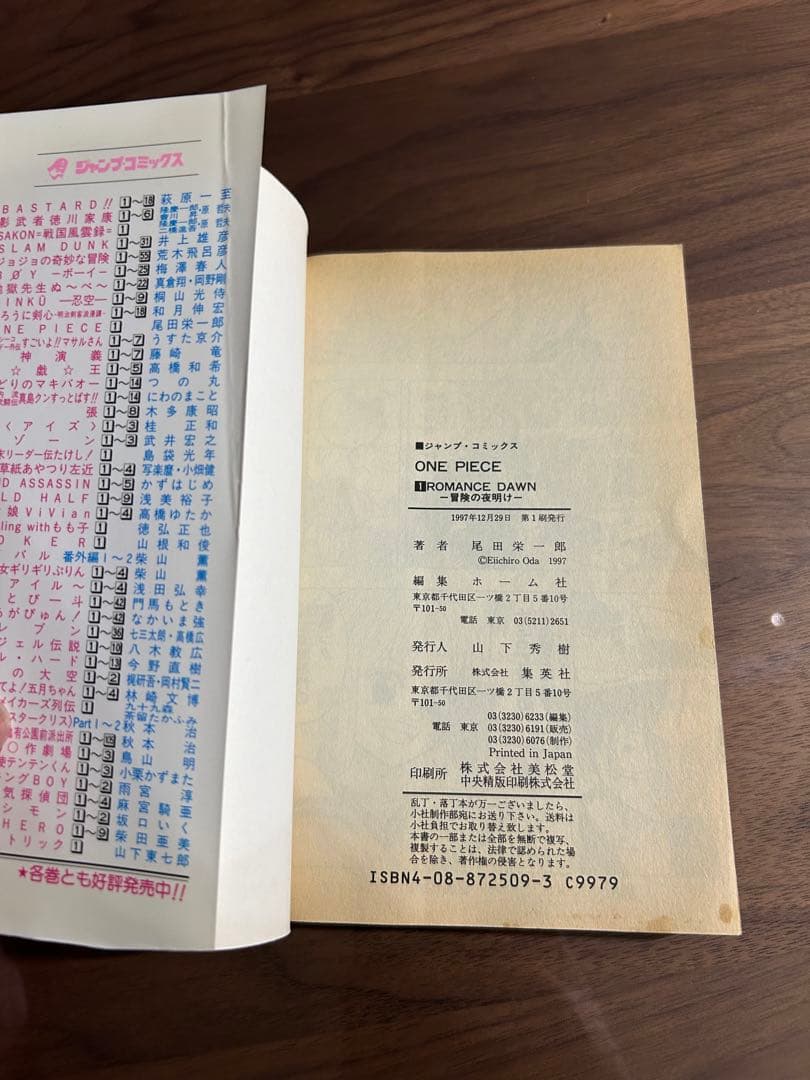 ジャンプ・コミックス
BASTARD!! 1〜18 萩原一至
影武者徳川家康 1〜6 隆慶一郎・原哲夫 會川昇
SAKON=戦国風雲録= 1 隆慶一郎・原哲夫 二橋進吾
SLAM DUNK 1〜31 井上雄彦
ジョジョの奇妙な冒険 1〜55 荒木飛呂彦
BØY ―ボーイ― 1〜25 梅澤春人
獄先生ぬ〜べ〜 1〜22 真倉翔・岡野剛
INKŪ ―忍空― 1〜9 桐山光侍
ろうに剣心・明治剣客浪漫譚・ 1〜18 和月伸宏
ONE PIECE 1 尾田栄一郎
すごいよ!!マサルさん 1〜7 うすた京介
神演義 1〜7 藤崎竜
☆戯☆王 1〜5 高橋和希
どりのマキバオー 1〜14 つの丸
真島クンすっとばす!! 1〜14 にわのまこと
張 1〜8 木多康昭
〈アイズ〉 1〜3 桂正和
ゾーン 1〜3 武井宏之
末リーダー伝たけし! 1 島袋光年
草紙あやつり左近 1〜4 写楽麿・小畑健
D ASSASSIN 1〜5 かずはじめ
LD HALF 1〜9 浅美裕子
娘ViVian 1〜4 高橋ゆたか
ling withもも子 1 徳弘正也
OKER 1 山根和俊
バル 番外編1〜2 柴山薫
女ギリギリぷりん 1〜4 柴山薫
アイル〜 1〜4 浅田弘幸
とび一斗 1〜42 門馬もとき
がびゅん! 1〜42 なかいま強
レブン 1〜36 七三太朗・高橋広
ジェル伝説 1〜10 八木教広
ル・ハード 1〜13 今野直樹
の大空 1〜2 梶研吾・岡村賢二
てよ!五月ちゃん 1〜4 林崎文博
メイカーズ列伝 1 九十九森
スタークリス) Part1〜2 茶留たかふみ
有公園前派出所 秋本治
〇作劇場 1〜3 秋本治
テンテンくん 1〜3 鳥山明
ングBOY 1〜2 小栗かずまた
気探偵団 1〜4 雨宮淳
シモン 1〜2 麻宮騎亜
HERO 1〜9 坂口いく
トリック 1 柴田亜美
山下東七郎
★各巻とも好評発売中!!
■ジャンプ・コミックス
ONE PIECE
1ROMANCE DAWN
―冒険の夜明け―
1997年12月29日 第1刷発行
著者 尾田栄一郎
©Eiichiro Oda 1997
編集 ホーム社
東京都千代田区一ツ橋2丁目5番10号
〒101-50
電話 東京 03(5211)2651
発行人 山下秀樹
発行所 株式会社 集英社
東京都千代田区一ツ橋2丁目5番10号
〒101-50
03(3230)6233(編集)
電話 東京 03(3230)6191(販売)
03(3230)6076(制作)
Printed in Japan
印刷所 株式会社美松堂
中央精版印刷株式会社
乱丁・落丁本が万一ございましたら、
小社制作部宛にお送り下さい。送料は
小社負担でお取り替え致します。
本書の一部または全部を無断で複写、
複製することは、法律で認められた場
合を除き、著作権の侵害となります。
ISBN4-08-872509-3 C9979